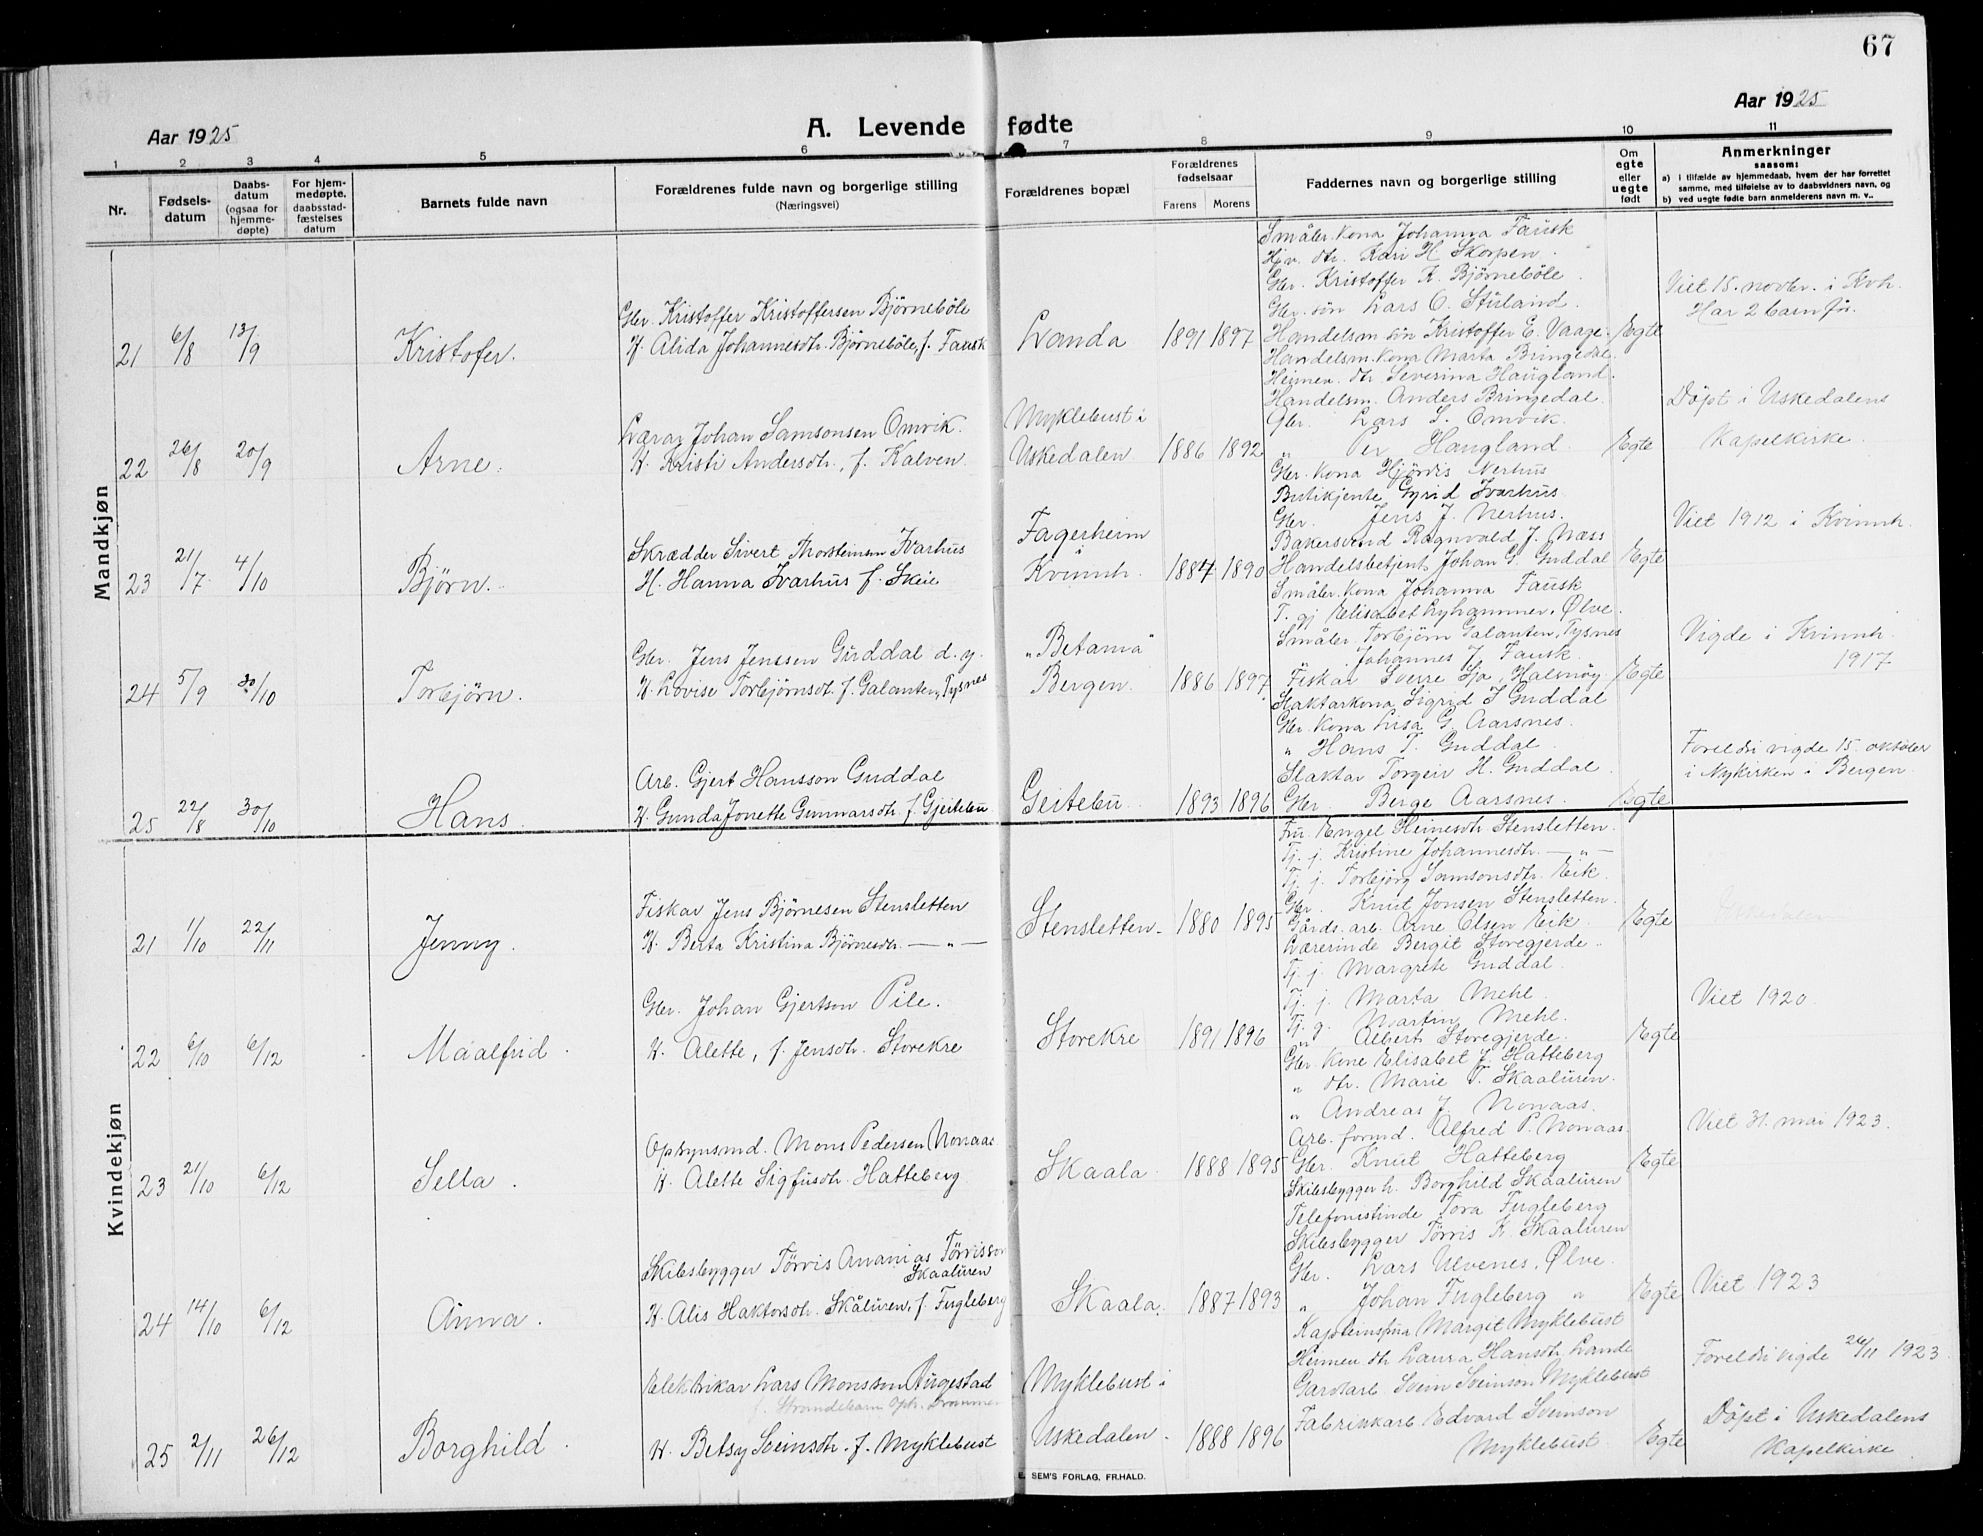 67
Aar 1925
A. Levende fødte
Aar 1925
1 2 3 4 5 6 7 8 9 10 11
Nr.
Fødsels-
datum
Daabs-
datum
(ogsaa for
hjemme-
døpte)
For hjem-
medøpte,
daabsstad-
fæstelses
datum
Barnets fulde navn
Forældrenes fulde navn og borgerlige stilling
(Næringsvei)
Forældrenes bopæl
Forældrenes
fødselsaar
Farens Morens
Faddernes navn og borgerlige stilling
Om
egte
eller
uegte
født
Anmerkninger
saasom:
a) i tilfælde av hjemmedaab, hvem der har forrettet
samme, med tilføielse av to daabsvidners navn, og
b) ved uegte fødte barn anmelderens navn m. v..
Mandkjøn
21 6/8 13/9 Kristofer.
Gbr. Kristoffer Kristoffersen Bjørnebøle
H. Alida Johannesdtr. Bjørnebøle, f. Fausk
Landa 1891 1897
Småbr. kona Johanna Fausk
Hjv. dtr. Kari H Skorpen.
Gbr. Kristoffer K. Bjørnebøle.
Gbr. søn Lars O. Stuland.
Handelsm søn Kristoffer E. Vaage.
Egte
Viet 15. novbr. i Kvh.
Har 2 barn før.
22 26/8 20/9 Arne.
Lærar Johan Samsonsen Omvik.
H. Kristi Andersdtr., f. Kalven.
Myklebust i
Uskedalen. 1886 1892
Handelsm. kona Marta Bringedal.
Heimev. dtr. Severina Haugland.
Handelsm. Anders Bringedal.
Gbr. Lars S. Omvik.
" Per Haugland.
Egte
Döpt i Uskedalens
Kapelkirke.
23 21/7 4/10 Bjørn.
Skrædder Sivert Thorsteinsen Ivarhus
H. Hanna Ivarhus f. Skeie
Fagerheim
i
Kvinnh. 1884 1890
Gbr. kona Hjördis Nerhus
Butikjente Gyrid Ivarhus.
Gbr. Jens J. Nerhus.
Bakersvend Ragnvald J. Næss
Handelsbetjent Johan G. Guddal
Egte
Viet 1912 i Kvinnh.
24 5/9 30/10 Torbjørn.
Gbr. Jens Jenssen Guddal d. y.
H. Lovise Torbjørnsdt. f. Galanten, Tysnes
"Betania"
Bergen. 1886 1897
Småbr. kona Johanna Fausk
T. gj Elisabet Lyhammer, Ølve.
Småbr. Torbjørn Galanten, Tysnes
Johannes J. Fausk.
Fiskar Sverre Sjo, Halsnøy
Egte
Vigde i Kvinnh.
1917
25 22/8 30/10 Hans.
Arb. Gjert Hansson Guddal
H. Gunda Jonette Gunnarsdtr. f. Gjeitebu
Geitebu. 1893 1896
Slaktarkona Sigrid J Guddal
Gbr. kona Lusa G. Aarsnes.
" Hans T. Guddal.
Slaktar Torgeir H. Guddal.
Gbr. Berge Aarsnes.
Egte
Foreldri vigde 15. oktober
i Nykirken i Bergen.
Kvindekjøn
21 1/10 22/11 Jenny.
Fiskar Jens Bjørnesen Stensletten
H. Berta Kristina Bjørnesdtr. — " —
Stensletten. 1880 1895
Fru. Engel Heinesdtr. Stensletten.
Tj. j. Kristine Johannesdtr. — " —
Tj. j. Torbjørg Samsonsdtr. Eik.
Gbr. Knut Jonsen Stensletten.
Gårds. arb. Arne Olsen Eik.
Egte
22 6/10 6/12 Maalfrid.
Gbr. Johan Gjertson Pile.
H. Alette, f. Jensdtr. Storekre
Storekre 1891 1896
Lærerinde Bergit Storegjerde.
Tj. j. Margrete Guddal.
Tj. j. Marta Mehl.
Tj. g. Martin Mehl.
" Albert Storegjerde.
Egte
Viet 1920.
23 21/10 6/12 Sella.
Opsynsmd. Mons Pedersen Nonaas
H. Alette Sigfusdtr. Hatteberg
Skaala. 1888 1895
Gbr. kone Elisabet J. Hatteberg
" dtr. Marie T. Skaaluren.
" Andreas J. Nonaas.
Arb. formd. Alfred P. Nonaas.
Gbr. Knut Hatteberg
Egte
Viet 31. mai 1923.
24 14/10 6/12 Anna.
Skibsbygger Tørris Ananias Tørrisson
Skaaluren
H. Alis Haktorsdtr. Skåluren, f. Fugleberg
Skaala. 1887 1893
Skibsbygger h. Borghild Skaaluren
Telefonistinde Tora Fugleberg
Skibsbygger Tørris K. Skaaluren
Gbr. Lars Ulvenes, Ølve.
" Johan Fugleberg "
Egte
Viet 1923
25 2/11 26/12 Borghild.
Elektrikar Lars Monsson Augestad
f. Strandebarm Opr. Drammen
H. Betsy Sveinsdtr. f. Myklebust
Myklebust i
Uskedalen. 1888 1896
Kapteinsfrua Margit Myklebust
Heimev dtr Laura Hansdtr. Lande
Gardarb Svein Sveinson Myklebust
Fabrikkarb Edvard Sveinson
Myklebust
Egte
Foreldri vigde 26/11 1923.
Döpt i Uskedalens
Kapelkirke
E. SEM'S FORLAG, FR.HALD.